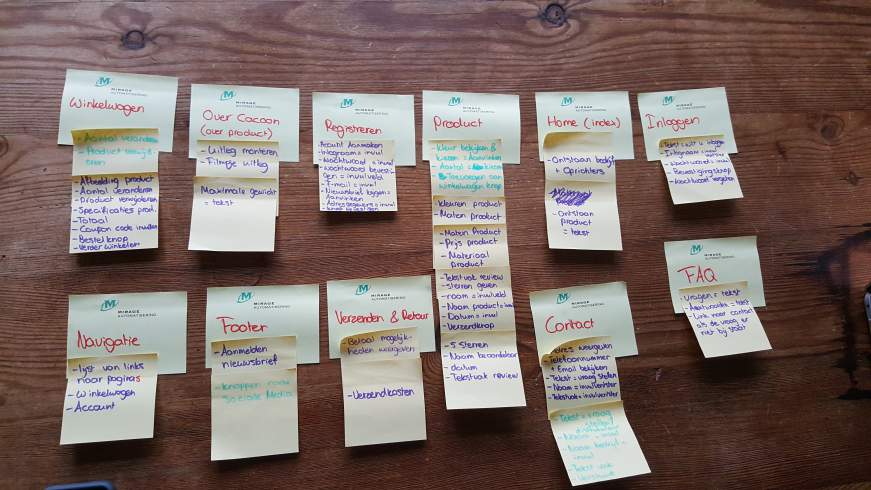 M MIRAGE
AUTOMATISERING
Winkelwagen
- Aantal veranderen
- Product verwijd
eren
- Afbeelding product
- Aantal veranderen
- Product verwijderen
- Specificaties prod.
- Totaal
- Coupon code invullen
- Bestelknop
- Verder winkelen
M MIRAGE
AUTOMATISERING
Over Cocoon
(over product)
- Uitleg monteren
- Filmpje uitleg
Maximale gewicht
= tekst
M MIRAGE
AUTOMATISERING
Registreren
Account Aanmaken
- Inlognaam = invul
- Wachtwoord = invul
- Wachtwoord bevesti-
gen = invulveld
- E-mail = invul
- Nieuwsbrief krijgen =
Aanvinken
- Adresgegevens = invul
M MIRAGE
AUTOMATISERING
Product
- Kleur bekijken &
kiezen = Aanvinken
- Aantal
- Toevoegen aan
winkelwagen knop
- Kleuren product
- Maten product
- Maten Product
- Prijs product
- Materiaal
product
- Tekstvak review
- Sterren geven
- naam = invulveld
- Naam product =
- Datum = invul
- Verzendknop
- 5 Sterren
- Naam beoordelaar
- datum
- Tekstvak review
M MIRAGE
AUTOMATISERING
Home (index)
- Ontstaan bedrijf
+ Oprichters
- Ontstaan
product
= tekst
M MIRAGE
AUTOMATISERING
Inloggen
- Inlognaam
- Wachtwoord = invul
- Bevestigingsknop
- Wachtwoord vergeten
M MIRAGE
AUTOMATISERING
Navigatie
- lijst van links
naar pagina's
- Winkelwagen
- Account
M MIRAGE
AUTOMATISERING
Footer
- Aanmelden
nieuwsbrief
- Knoppen naar
Sociale Media
M MIRAGE
AUTOMATISERING
Verzenden & Retour
- Betaal mogelijk-
heden weergeven
- Verzendkosten
M MIRAGE
AUTOMATISERING
Contact
- Adres weergeven
- Telefoonnummer
+ Email bekijken
- Tekst = vraag stellen
- Naam = invulvenster
- Tekstvak = invulvenster
- Tekst = vraag
stellen
- Naam = invul
- Naam bedrijf =
invul
- Tekst vak
M MIRAGE
AUTOMATISERING
FAQ
- Vragen = tekst
- Antwoorden = tekst
- Link naar contact
als de vraag er
niet bij staat